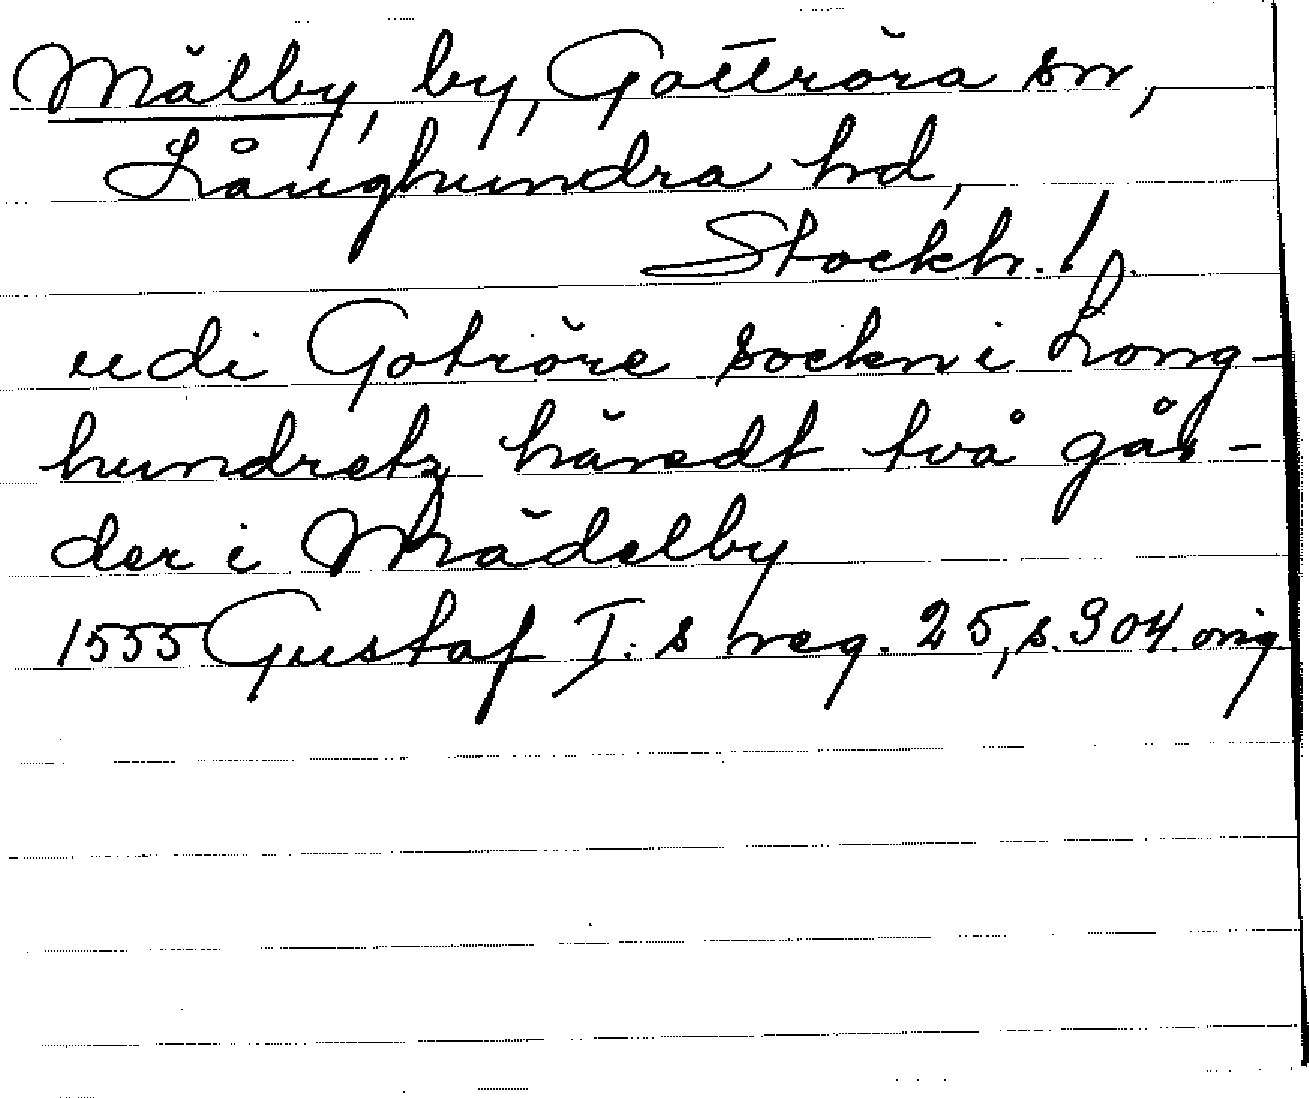 Mälby, by, Gottröra sn,
Långhundra hd,
Stockh. l.
udi Gotröre sockn i Long-
hundretz häredt två går-
der i Mädelby
1555 Gustaf I:s reg. 25, s. 304. orig.